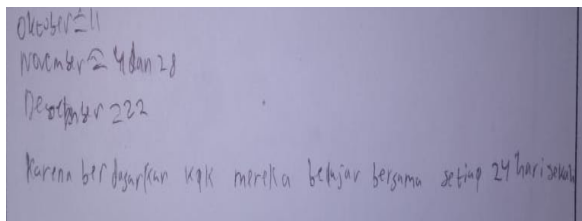 Oktober = 11
November = 4 dan 28
Desember = 22
Karena berdasarkan KPK mereka belajar bersama setiap 24 hari sekali